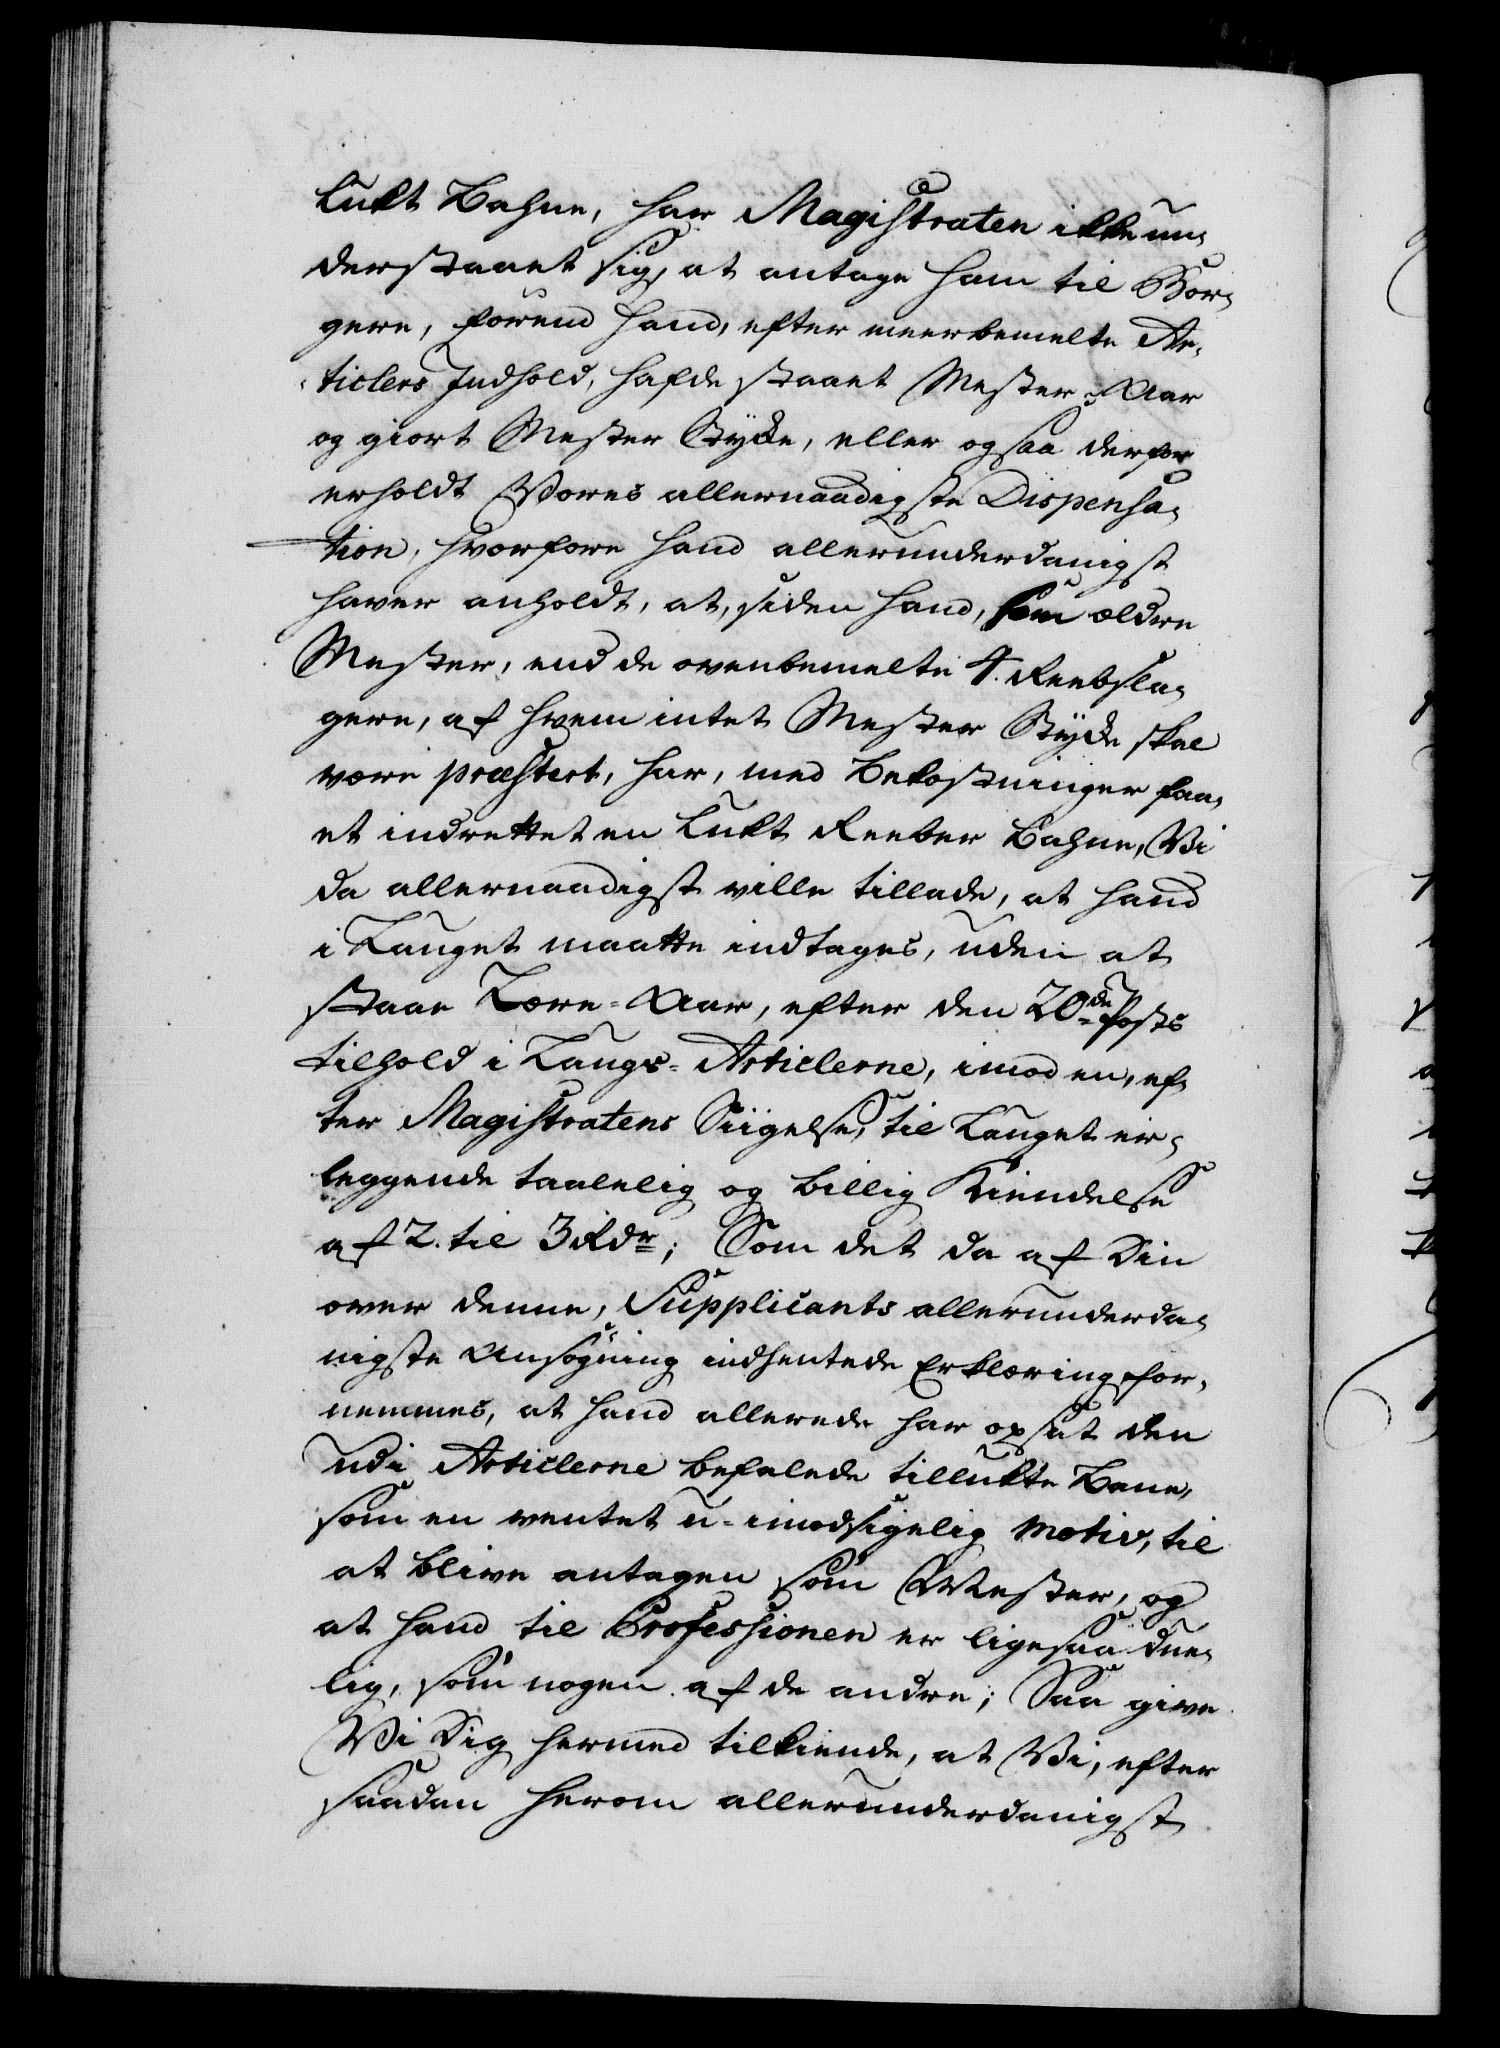 lukt Bahne, har Magistraten ikke un-
derstaaet sig, at antage ham til Bor-
gere, förend hand, efter meerbemelte Ar-
ticlers Indhold, hafde staaet Mester-Aar
og giort Mester Stykke, eller ogsaa derfor
erholdt Vores allernaadigste Dispensa-
tion, hvorfore hand allerunderdanigst
haver anholdt, at, siden hand, som ældre
Mester, end de ovenbemelte 4. Reebsla-
gere, af hvem intet Mester Stykke skal
være præstert, har, med Bekostninger faa-
et indrettet en lukt Reeber Bahne, Vi
da allernaadigst ville tillade, at hand
i Lauget maatte indtages, uden at
staae Lære-Aar, efter den 20de Posts
tilhold i Laugs-Articlerne, imod en, ef-
ter Magistratens Siigelse, til Lauget er-
leggende taalelig og billig Kiendelse
af 2. til 3 Rdr; Som det da af Din
over denne, Supplicants allerunderda-
nigste Ansøgning indhentede Erklæring for-
nemmes, at hand allerede har opsat den
udi Articlerne befalede tillukte Bane,
som en ventet u-imodsigelig Motiv, til
at blive antagen som Mester, og
at hand til Professionen er ligesaa due-
lig, som nogen af de andre; Saa give
Vi Dig hermed tilkiende, at Vi, efter
saadan herom allerunderdanigst